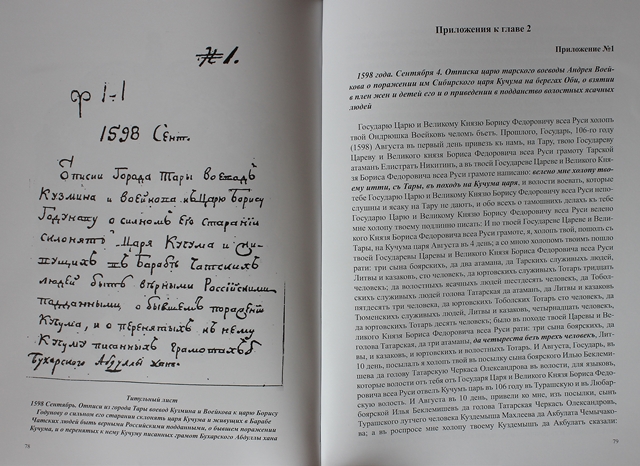 № 1.
ф 1-1
1598 Сент.
Описи Города Тары воеводъ
Кузмина и Воейкова къ Царю Борису
Годунову о силномъ Его старании
склонять Царя Кучума и жи-
вущихъ въ Барабѣ Чатскихъ
людей быть вѣрными Российскими
подданными, о бывшемъ поражении
Кучума, и о перенятыхъ къ нему
Кучуму писанныхъ грамотахъ
Бухарского Абдуллы хана.
Титульный лист
1598 Сентябрь. Отписи из города Тары воевод Кузмина и Воейкова к царю Борису
Годунову о сильном его старании склонять царя Кучума и живущих в Барабе
Чатских людей быть верными Российскими подданными, о бывшем поражении
Кучума, и о перенятых к нему Кучуму писанных грамот Бухарского Абдуллы хана
78
Приложения к главе 2
Приложение №1
1598 года. Сентября 4. Отписка царю тарского воеводы Андрея Воей-
кова о поражении им Сибирского царя Кучума на берегах Оби, о взятии
в плен жен и детей его и о приведении в подданство волостных ясачных
людей
Государю Царю и Великому Князю Борису Федоровичу всеа Руси холопъ
твой Ондрюшка Воейковъ челомъ бьетъ. Прошлого, Государь, 106-го году
(1598) Августа въ первый день привезъ къ намъ, на Тару, твою Государеву
Цареву и Великого князя Бориса Федоровича всеа Руси грамоту Тарской
атаманъ Елистратъ Никитинъ, а въ твоей Государеве Цареве и Великого Кня-
зя Бориса Федоровича всеа Руси грамоте написано: велено мне холопу тво-
ему итти, съ Тары, въ походъ на Кучума царя, и волости воевать, которые
тебе Государю Царю и Великому Князю Борису Федоровичу всеа Руси непо-
слушны и ясаку на Тару не дають, и обо всемъ о тамошнихъ делахъ къ тебе
Государю Царю и Великому Князю Борису Федоровичу всеа Руси велено
мне холопу твоему подлинно писать: И по твоей Государеве Цареве и Вели-
кого Князя Бориса Федоровича всеа Руси грамоте, я, холопъ твой, пошолъ съ
Тары, на Кучума царя Августа въ 4 день; а со мною холопомъ твоимъ пошло
твоей Государевы Царевы и Великого Князя Бориса Федоровича всеа Руси
рати: три сына боярскихъ, да два атамана, да Тарскихъ служивыхъ людей,
Литвы и казаковъ, сто человекъ, да юртовскихъ Тотаръ тридцать
человекъ, да волостныхъ ясачныхъ людей шестдесять человекъ, да Тоболь-
скихъ служивыхъ людей голова Татарская да атаманъ, да Литвы и казаковъ
пятдесять три человека, да юртовскихъ Тоболскихъ Тотаръ сто человекъ, да
Тюменскихъ служивыхъ людей, Литвы и казаковъ, четырнадцать человекъ,
да юртовскихъ Тотаръ десять человекъ; было въ походе твоей Царевы и Ве-
ликого Князя Бориса Федоровича всеа Руси рати: три сына боярскихъ, да
голова Татарская, да три атаманы, да четыреста безъ трехъ человекъ, Лит-
вы, и казаковъ, и юртовскихъ и волостныхъ Тотаръ. И Августа, Государь, въ
10 день, посылалъ я холопъ твой въ посылку сына боярского Илью Беклеми-
шева да голову Татарскаго Черкаса Олександрова въ волости, для языковъ,
которые волости отъ тебя отъ Государя Царя и Великого Князя Бориса Федо-
ровича всеа Руси отвелъ Кучумъ царь въ 106 году въ Турашскую и въ Любар-
скую волости. И Августа въ 10 день, привели ко мне, изъ посылки, сынъ
боярской Илья Беклемишевъ да голова Татарская Черкасъ Олександровъ,
Турашского лутчего человека Куздемыша Махлеева да Акбулата Чемычако-
ва; а въ роспросе мне холопу твоему Куздемышъ да Акбулатъ сказали:
79